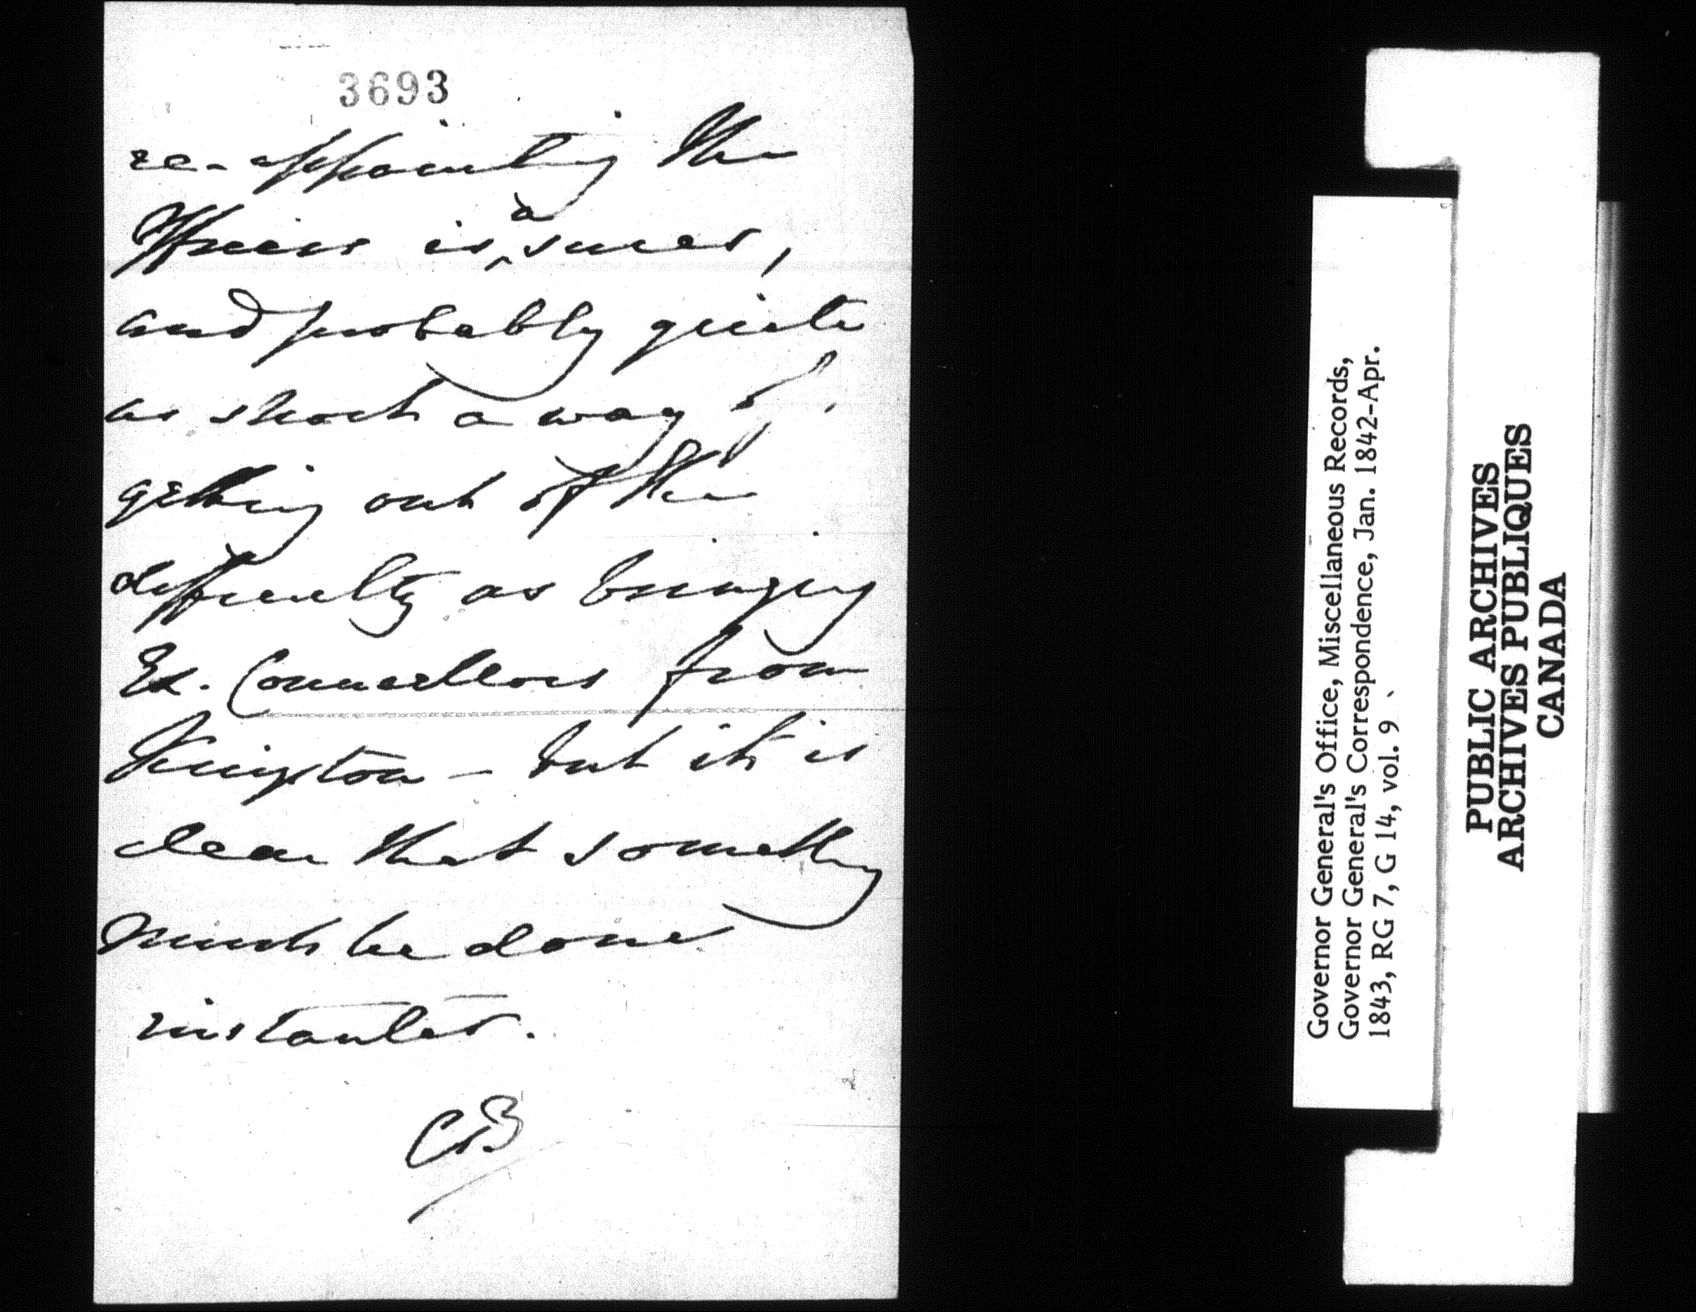 3693
re-appointing the
is a surer,
and probably quite
as short a way of
getting out of the
difficulty as bringing
Ex. Councillors from
Kingston – but it is
clear that something
must be done
instanter.
CB
Governor General's Office, Miscellaneous Records,
Governor General's Correspondence, Jan. 1842-Apr.
1843, RG 7, G 14, vol. 9
PUBLIC ARCHIVES
ARCHIVES PUBLIQUES
CANADA